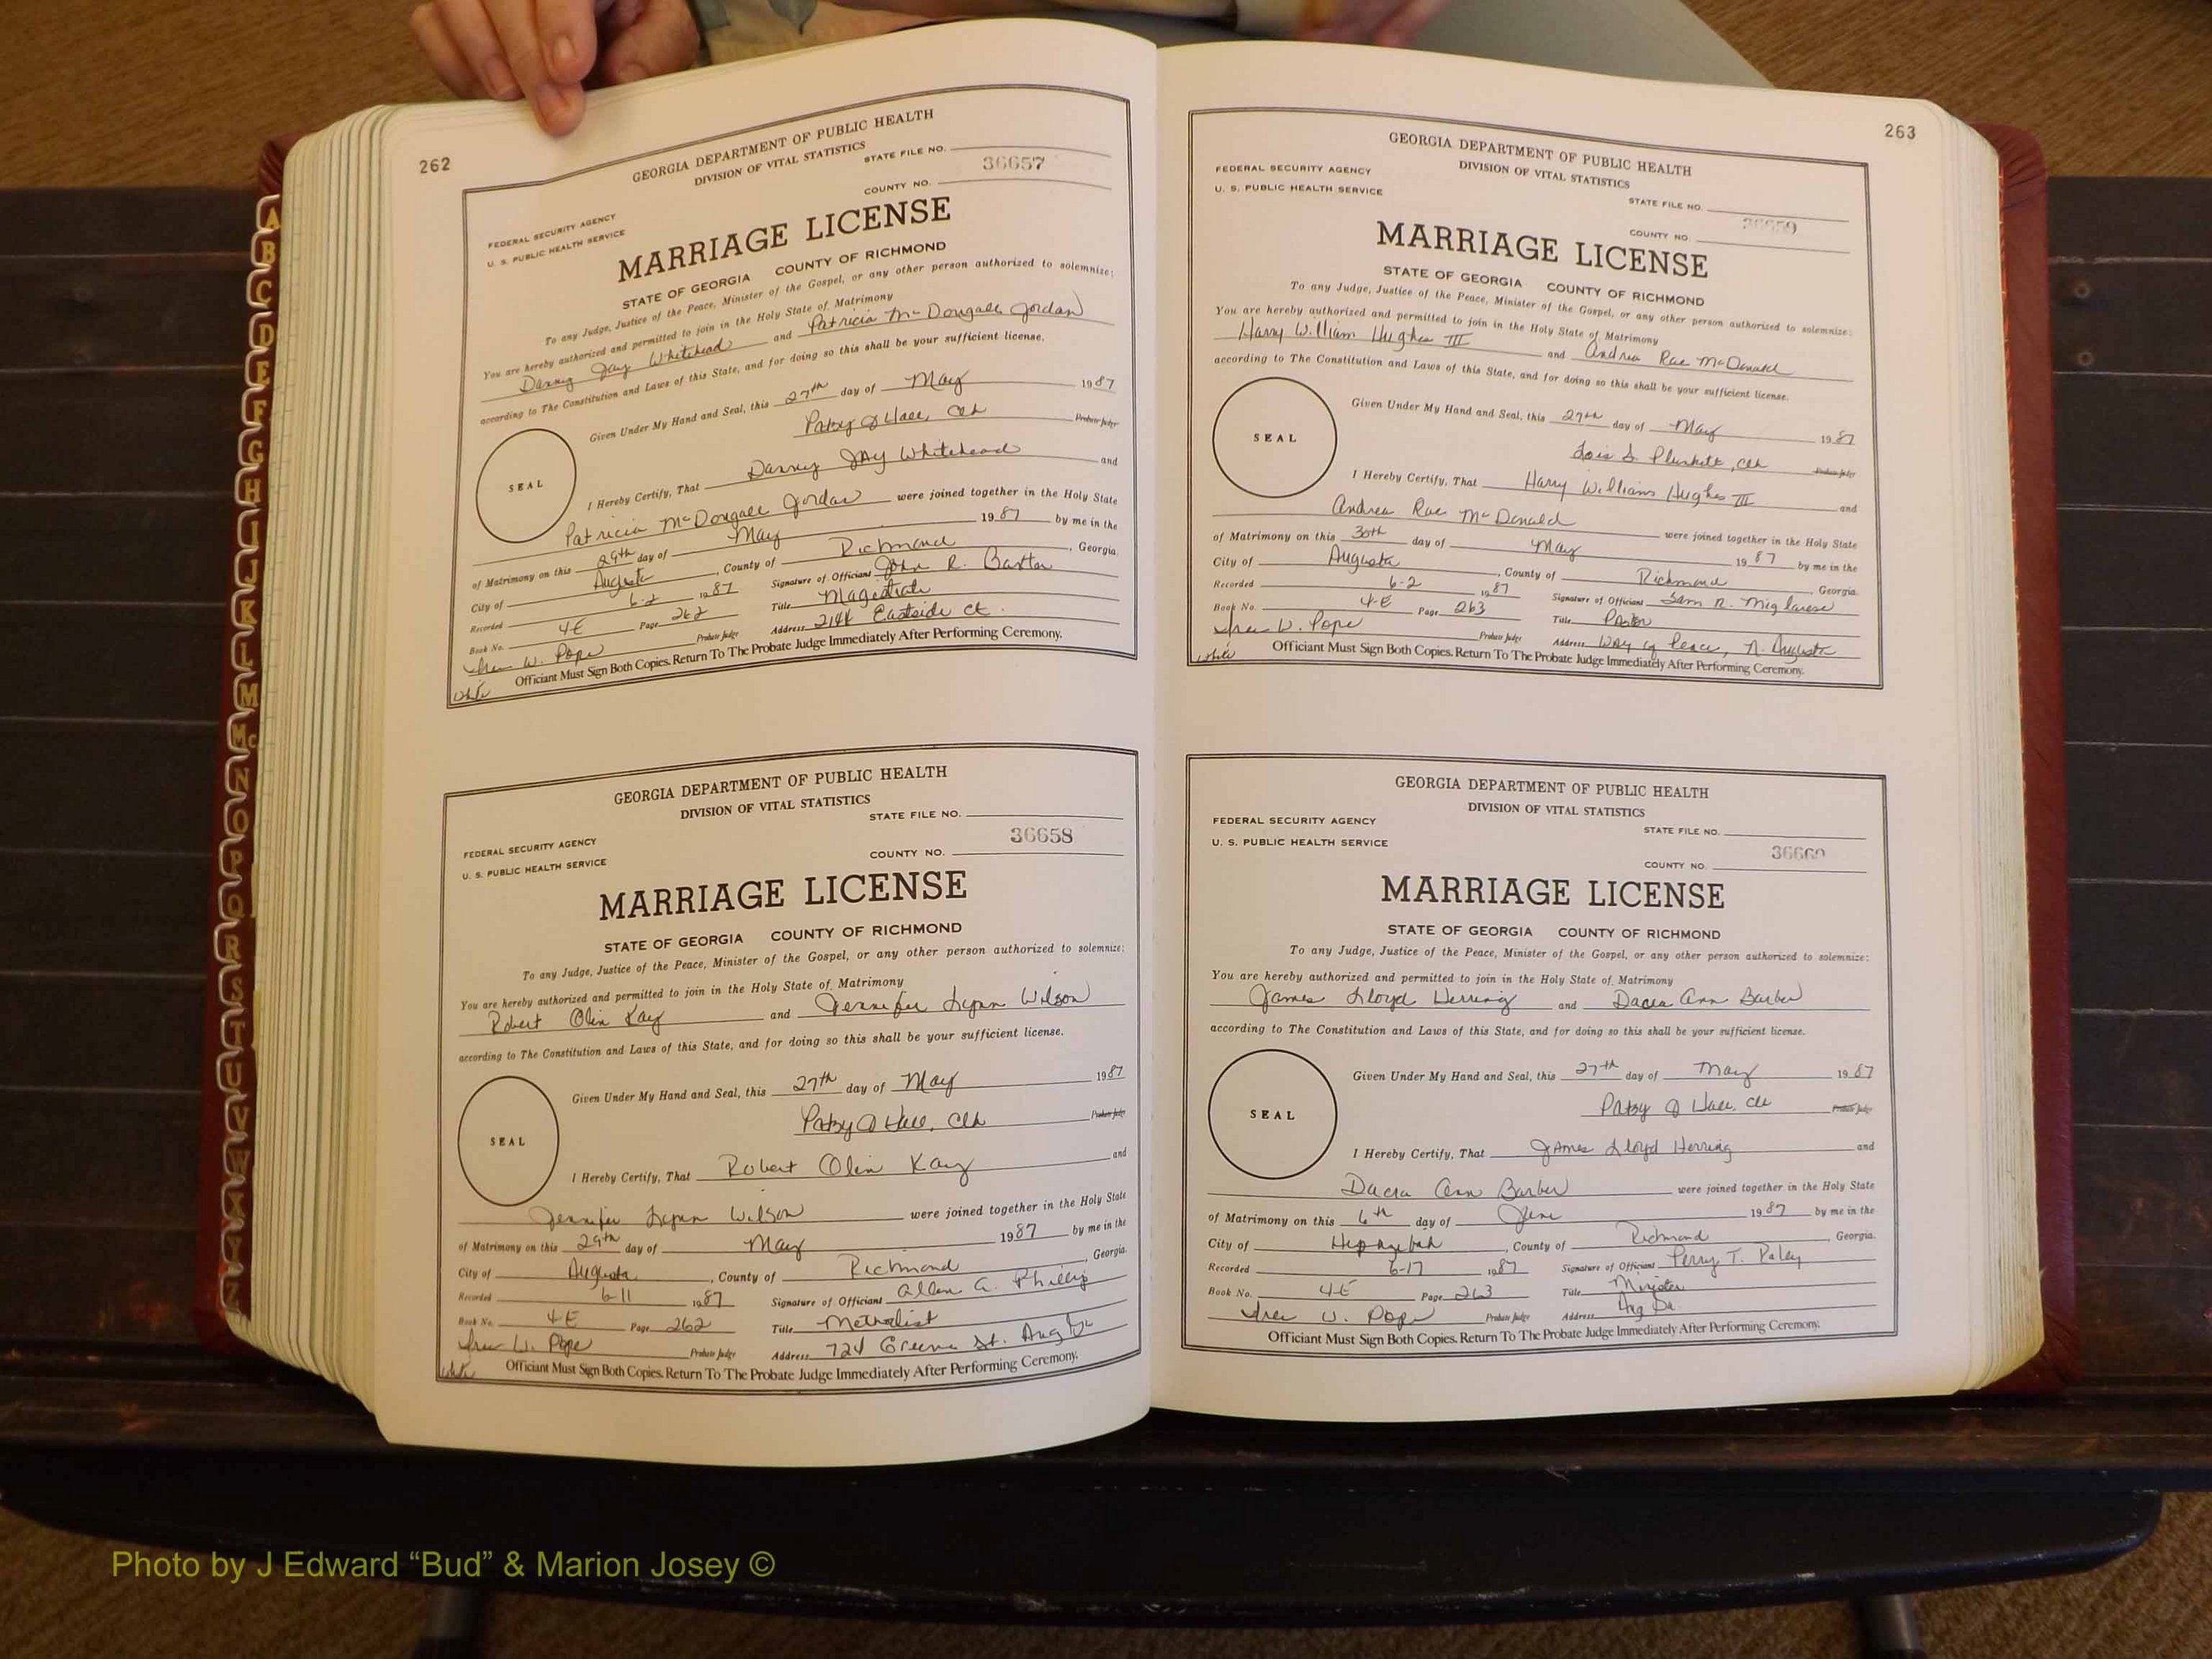 262
GEORGIA DEPARTMENT OF PUBLIC HEALTH
DIVISION OF VITAL STATISTICS
STATE FILE NO.
36657
COUNTY NO.
FEDERAL SECURITY AGENCY
U. S. PUBLIC HEALTH SERVICE
MARRIAGE LICENSE
STATE OF GEORGIA COUNTY OF RICHMOND
To any Judge, Justice of the Peace, Minister of the Gospel, or any other person authorized to solemnize:
You are hereby authorized and permitted to join in the Holy State of Matrimony
Danny Jay Whitehead and Patricia McDougall Jordan
according to The Constitution and Laws of this State, and for doing so this shall be your sufficient license.
Given Under My Hand and Seal, this 27th day of May 1987
Patsy Q Hall, Clk Probate Judge
SEAL
I Hereby Certify, That Danny JAy Whitehead and
Patricia McDougall Jordan were joined together in the Holy State
of Matrimony on this 29th day of May 1987 by me in the
City of Augusta, County of Richmond, Georgia.
Recorded 6-2 1987 Signature of Officiant John R. Baxter
Book No. 4E Page 262 Title Magistrate
W. Pope Probate Judge Address 2144 Eastside Ct.
white Officiant Must Sign Both Copies. Return To The Probate Judge Immediately After Performing Ceremony.
GEORGIA DEPARTMENT OF PUBLIC HEALTH
DIVISION OF VITAL STATISTICS
STATE FILE NO.
36658
FEDERAL SECURITY AGENCY
U. S. PUBLIC HEALTH SERVICE
COUNTY NO.
MARRIAGE LICENSE
STATE OF GEORGIA COUNTY OF RICHMOND
To any Judge, Justice of the Peace, Minister of the Gospel, or any other person authorized to solemnize:
You are hereby authorized and permitted to join in the Holy State of Matrimony
Robert Olin Kay and Jennifer Lynn Wilson
according to The Constitution and Laws of this State, and for doing so this shall be your sufficient license.
Given Under My Hand and Seal, this 27th day of May 1987
Patsy Q Hall, Clk Probate Judge
SEAL
I Hereby Certify, That Robert Olin Kay and
Jennifer Lynn Wilson were joined together in the Holy State
of Matrimony on this 29th day of May 1987 by me in the
City of Augusta, County of Richmond, Georgia.
Recorded 6-11 1987 Signature of Officiant Allen G. Phillip
Book No. 4E Page 262 Title Methodist
W. Pope Probate Judge Address 724 Greene St. Aug
white Officiant Must Sign Both Copies. Return To The Probate Judge Immediately After Performing Ceremony.
263
GEORGIA DEPARTMENT OF PUBLIC HEALTH
DIVISION OF VITAL STATISTICS
FEDERAL SECURITY AGENCY
U. S. PUBLIC HEALTH SERVICE
STATE FILE NO.
36659
COUNTY NO.
MARRIAGE LICENSE
STATE OF GEORGIA COUNTY OF RICHMOND
To any Judge, Justice of the Peace, Minister of the Gospel, or any other person authorized to solemnize:
You are hereby authorized and permitted to join in the Holy State of Matrimony
Harry William Hughes III and Andrea Rae McDonald
according to The Constitution and Laws of this State, and for doing so this shall be your sufficient license.
Given Under My Hand and Seal, this 27th day of May 1987
Lois S. Plunkett, Clk Probate Judge
SEAL
I Hereby Certify, That Harry William Hughes III and
Andrea Rae McDonald were joined together in the Holy State
of Matrimony on this 30th day of May 1987 by me in the
City of Augusta, County of Richmond Georgia.
Recorded 6-2 1987 Signature of Officiant Sam R. Miglarese
Book No. 4-E Page 263 Title Pastor
W. Pope Probate Judge Address Way of Peace, N. Augusta
white Officiant Must Sign Both Copies. Return To The Probate Judge Immediately After Performing Ceremony.
GEORGIA DEPARTMENT OF PUBLIC HEALTH
DIVISION OF VITAL STATISTICS
FEDERAL SECURITY AGENCY
STATE FILE NO.
U. S. PUBLIC HEALTH SERVICE
36660
COUNTY NO.
MARRIAGE LICENSE
STATE OF GEORGIA COUNTY OF RICHMOND
To any Judge, Justice of the Peace, Minister of the Gospel, or any other person authorized to solemnize:
You are hereby authorized and permitted to join in the Holy State of Matrimony
James Lloyd Herring and Dacia Ann Barber
according to The Constitution and Laws of this State, and for doing so this shall be your sufficient license.
Given Under My Hand and Seal, this 27th day of May 1987
Patsy Q Hall, Clk Probate Judge
SEAL
I Hereby Certify, That JAmes Lloyd Herring and
Dacia Ann Barber were joined together in the Holy State
of Matrimony on this 6th day of June 1987 by me in the
City of Hephzibah, County of Richmond, Georgia.
Recorded 6-17 1987 Signature of Officiant Perry T. Raley
Book No. 4-E Page 263 Title Minister
W. Pope Probate Judge Address Aug Ga.
Officiant Must Sign Both Copies. Return To The Probate Judge Immediately After Performing Ceremony.
A
B
C
D
E
F
G
H
I
J
K
L
M
Mc
N
O
P
Q
R
S
T
U
V
W
X
Y
Z
Photo by J Edward “Bud” & Marion Josey ©